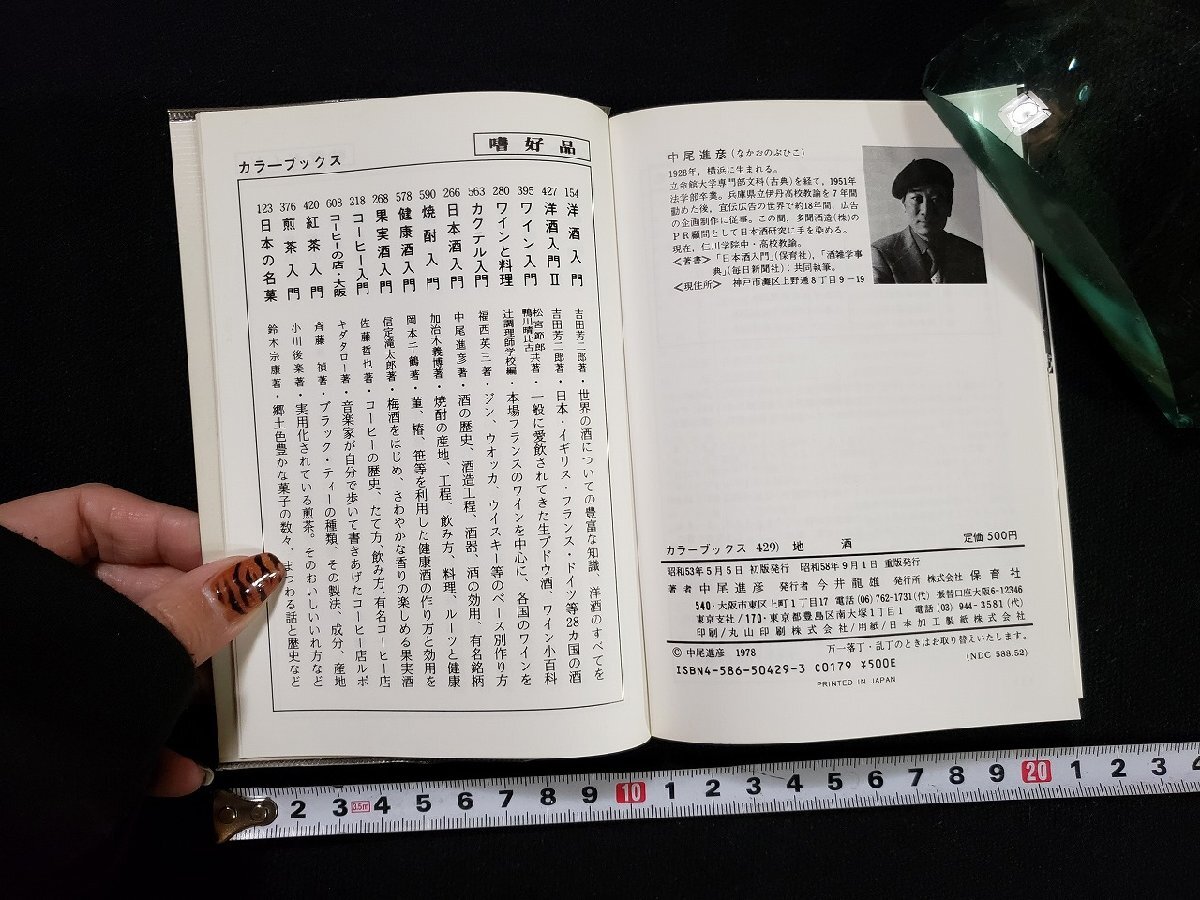 嗜好品
カラーブックス
154 洋酒入門 吉田芳二郎著・世界の酒についての豊富な知識、洋酒のすべてを
427 洋酒入門Ⅱ 吉田芳二郎著・日本・イギリス・フランス・ドイツ等28カ国の酒
395 ワイン入門 鴨川晴比古 松宮節郎共著・一般に愛飲されてきた生ブドウ酒、ワイン小百科
280 ワインと料理 辻調理師学校編・本場フランスのワインを中心に、各国のワインを
563 カクテル入門 福西英三著・ジン、ウオッカ、ウイスキー等のベース別作り方
266 日本酒入門 中尾進彦著・酒の歴史、酒造工程、酒器、酒の効用、有名銘柄
590 焼酎入門 加治木義博著・焼酎の産地、工程、飲み方、料理、ルーツと健康
578 健康酒入門 岡本一鶴著・菫、椿、笹等を利用した健康酒の作り方と効用を
268 果実酒入門 信定滝太郎著・梅酒をはじめ、さわやかな香りの楽しめる果実酒
218 コーヒー入門 佐藤哲也著・コーヒーの歴史、たて方、飲み方、有名コーヒー店
603 コーヒーの店・大阪 キダタロー著・音楽家が自分で歩いて書きあげたコーヒー店ルポ
420 紅茶入門 斉藤禎著・ブラック・ティーの種類、その製法、成分、産地
376 煎茶入門 小川後楽著・実用化されている煎茶。そのおいしいいれ方など
123 日本の名菓 鈴木宗康著・郷土色豊かな菓子の数々、まつわる話と歴史など
中尾進彦(なかおのぶひこ)
1928年，横浜に生まれる。
立命館大学専門部文科(古典)を経て，1951年
法学部卒業。兵庫県立伊丹高校教諭を7年間
勤めた後，宣伝広告の世界で約18年間，広告
の企画制作に従事。この間，多聞酒造(株)の
PR顧問として日本酒研究に手を染める。
現在，仁川学院中・高校教諭。
<著書>「日本酒入門」(保育社),「酒雑学事
典」(毎日新聞社)：共同執筆。
<現住所> 神戸市灘区上野通8丁目9－19
カラーブックス 429) 地 酒 定価 500円
昭和53年5月5日 初版発行 昭和58年9月1日 重版発行
著者 中尾進彦 発行者 今井龍雄 発行所 株式会社 保育社
540・大阪市東区上町1丁目17 電話(06)762-1731(代) 振替口座大阪6-12346
東京支社/171・東京都豊島区南大塚1丁目1 電話(03)944-3581(代)
印刷/丸山印刷株式会社/用紙/日本加工製紙株式会社
© 中尾進彦 1978 万一落丁・乱丁のときはお取り替えいたします。
ISBN4-586-50429-3 C0179 ¥500E (NDC 588.52)
PRINTED IN JAPAN
2 3 3.5m 4 5 6 7 8 9 10 1 2 3 4 5 6 7 8 9 20 1 2 3 4